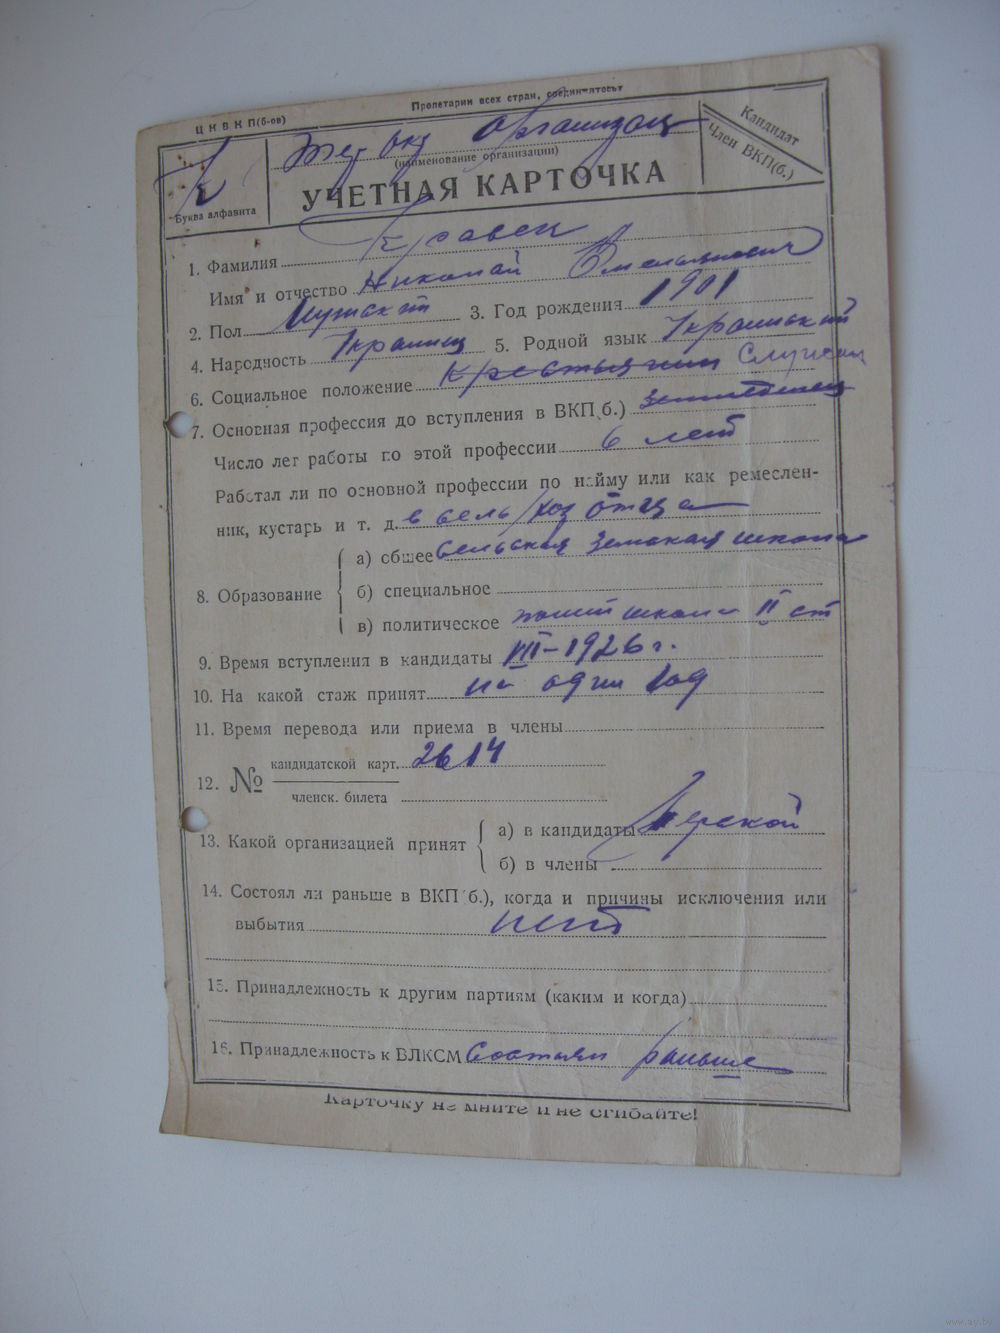 Ц К В К П(б-ов)
Пролетарии всех стран, соединяйтесь!
К
Буква алфавита
организац
(наименование организации)
Кандидат
Член ВКП(б.)
УЧЕТНАЯ КАРТОЧКА
1. Фамилия Кравец
Имя и отчество Николай Емельянович
2. Пол Мужской 3. Год рождения 1901
4. Народность Украинец 5. Родной язык Украинский
6. Социальное положение Крестьянин Служащий
7. Основная профессия до вступления в ВКП(б.) Земледелец
Число лет работы по этой профессии 6 лет
Работал ли по основной профессии по найму или как ремеслен-
ник, кустарь и т. д. в сель/хоз отца
8. Образование
а) общее Сельская Земская школа
б) специальное
в) политическое полит школа II ст
9. Время вступления в кандидаты VIII–1926 г.
10. На какой стаж принят на один год
11. Время перевода или приема в члены
12. № кандидатской карт. 2614
членск. билета
13. Какой организацией принят
а) в кандидаты
б) в члены
14. Состоял ли раньше в ВКП(б.), когда и причины исключения или
выбытия нет
15. Принадлежность к другим партиям (каким и когда)
16. Принадлежность к ВЛКСМ Состоял раньше
Карточку не мните и не сгибайте!
www.ay.by